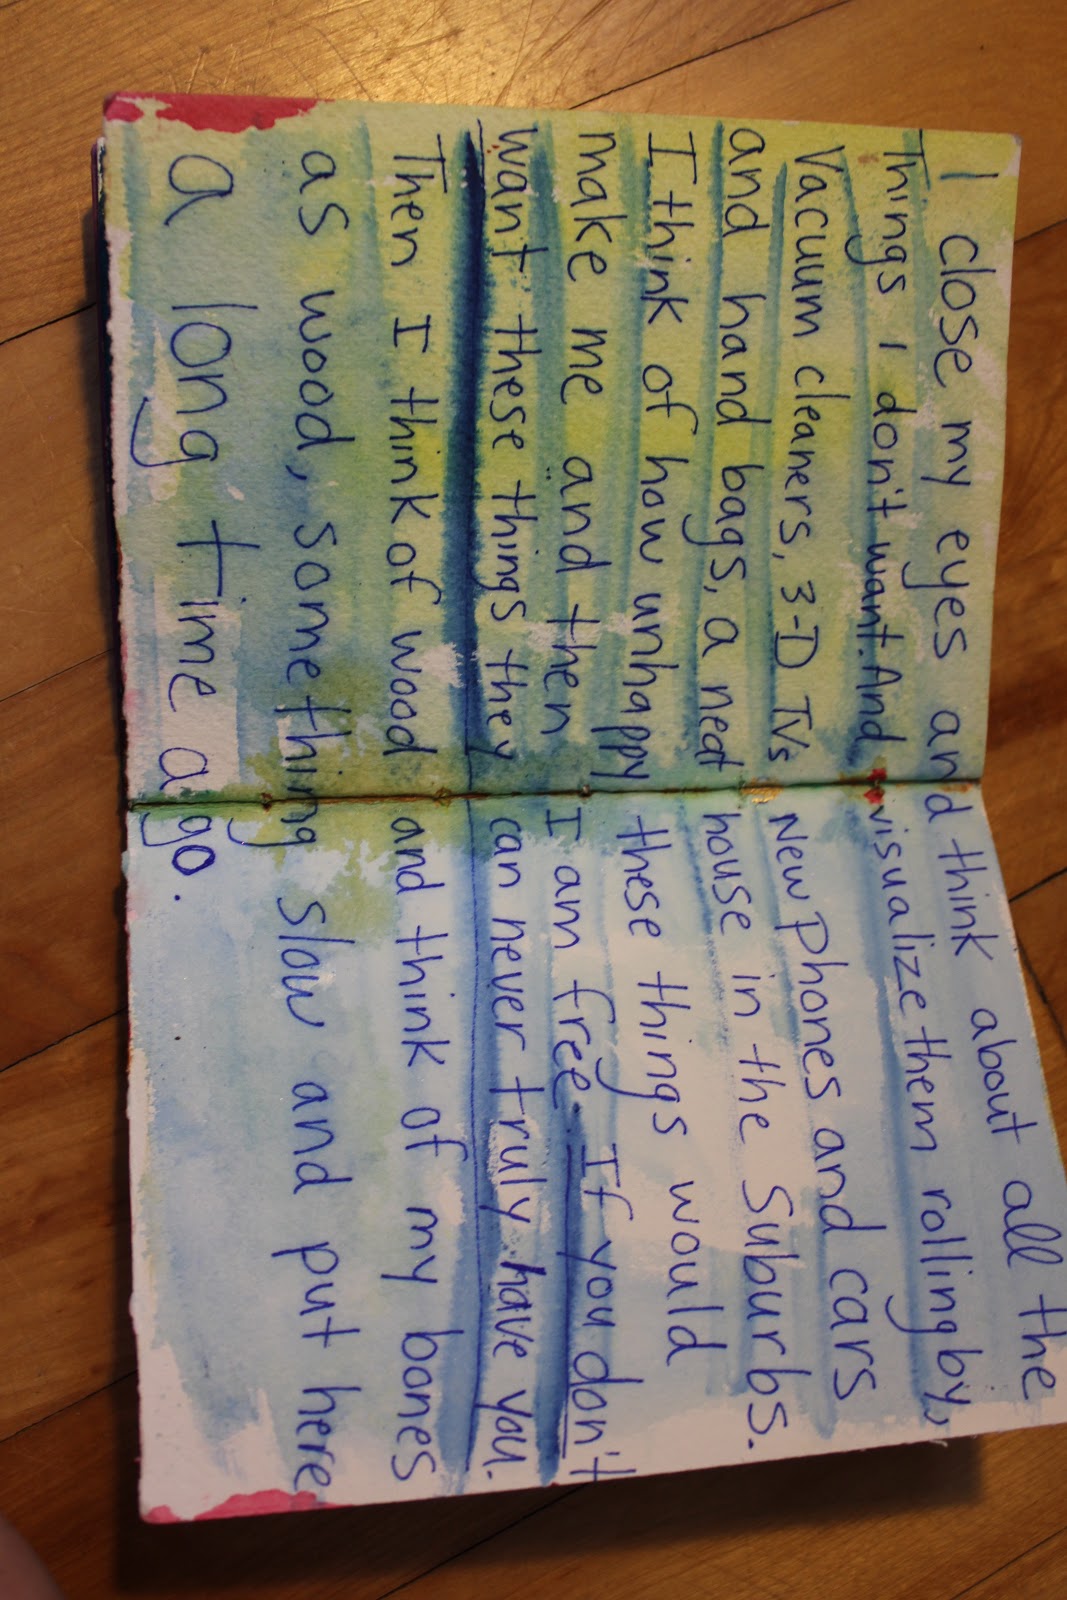 I close my eyes and think about all the
Things I don't want. And visualize them rolling by,
Vacuum cleaners, 3-D TVs New Phones and cars
and hand bags, a neat house in the Suburbs.
I think of how unhappy these things would
make me and then I am free. If you don't
want these things they can never truly have you.
Then I think of wood and think of my bones
as wood, something slow and put here
a long time ago.